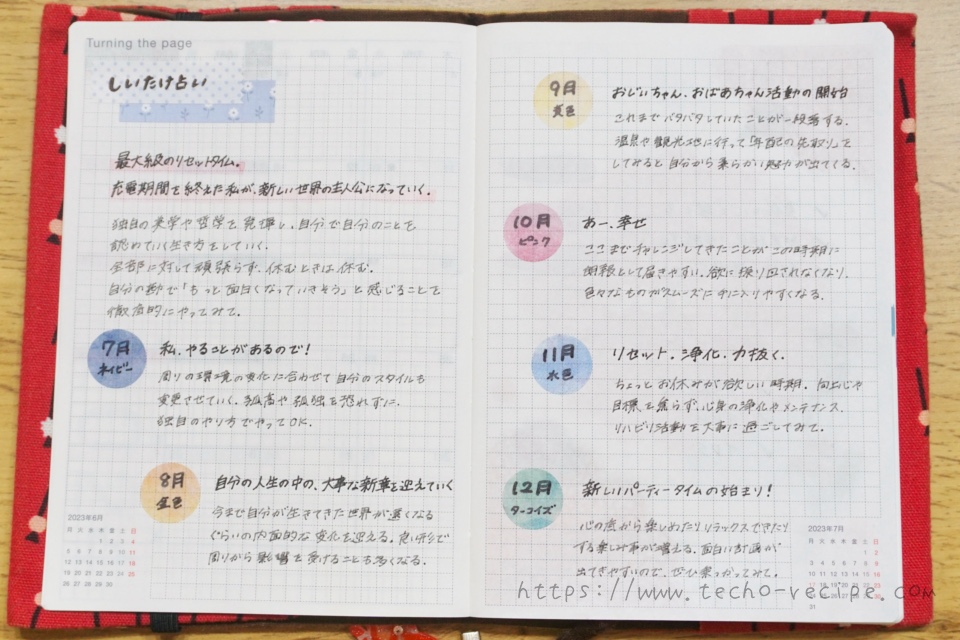 Turning the page
しいたけ占い
最大級のリセットタイム。
充電期間を終えた私が、新しい世界の主人公になっていく。
独自の美学や哲学を発揮し、自分で自分のことを
認めていく生き方をしていく。
全部に対して頑張らず、休むときは休む。
自分の勘で「もっと面白くなっていきそう」と感じることを
徹底的にやってみて。
7月
ネイビー
私、やることがあるので!
周りの環境の変化に合わせて自分のスタイルも
変更させていく。孤高や孤独を恐れずに。
独自のやり方でやってOK.
8月
金色
自分の人生の中の、大事な新章を迎えていく
今まで自分が生きてきた世界が遠くなる
ぐらいの内面的な変化を迎える。良い形で
周りから影響を受けることも多くなる。
2023年6月
月 火 水 木 金 土 日
1 2 3 4
5 6 7 8 9 10 11
12 13 14 15 16 17 18
19 20 21 22 23 24 25
26 27 28 29 30
9月
黄色
おじいちゃん、おばあちゃん活動の開始
これまでバタバタしていたことが一段落する。
温泉や観光地に行って「年配の先取り」を
してみると自分から柔らかい魅力が出てくる。
10月
ピンク
あー、幸せ
ここまでチャレンジしてきたことがこの時期に
報酬として届きやすい。欲に振り回されなくなり、
色々なものがスムーズに手に入りやすくなる。
11月
水色
リセット、浄化、力抜く、
ちょっとお休みが欲しい時期。向上心や
目標を焦らず、心身の浄化やメンテナンス、
リハビリ活動を大事に過ごしてみて。
12月
ターコイズ
新しいパーティータイムの始まり!
心の底から楽しめたりリラックスできたり
する楽しみ事が増える。面白い計画が
出てきやすいので、ぜひ乗っかってみて。
2023年7月
月 火 水 木 金 土 日
1 2
3 4 5 6 7 8 9
10 11 12 13 14 15 16
17
31
https://www.techo-recipe.com